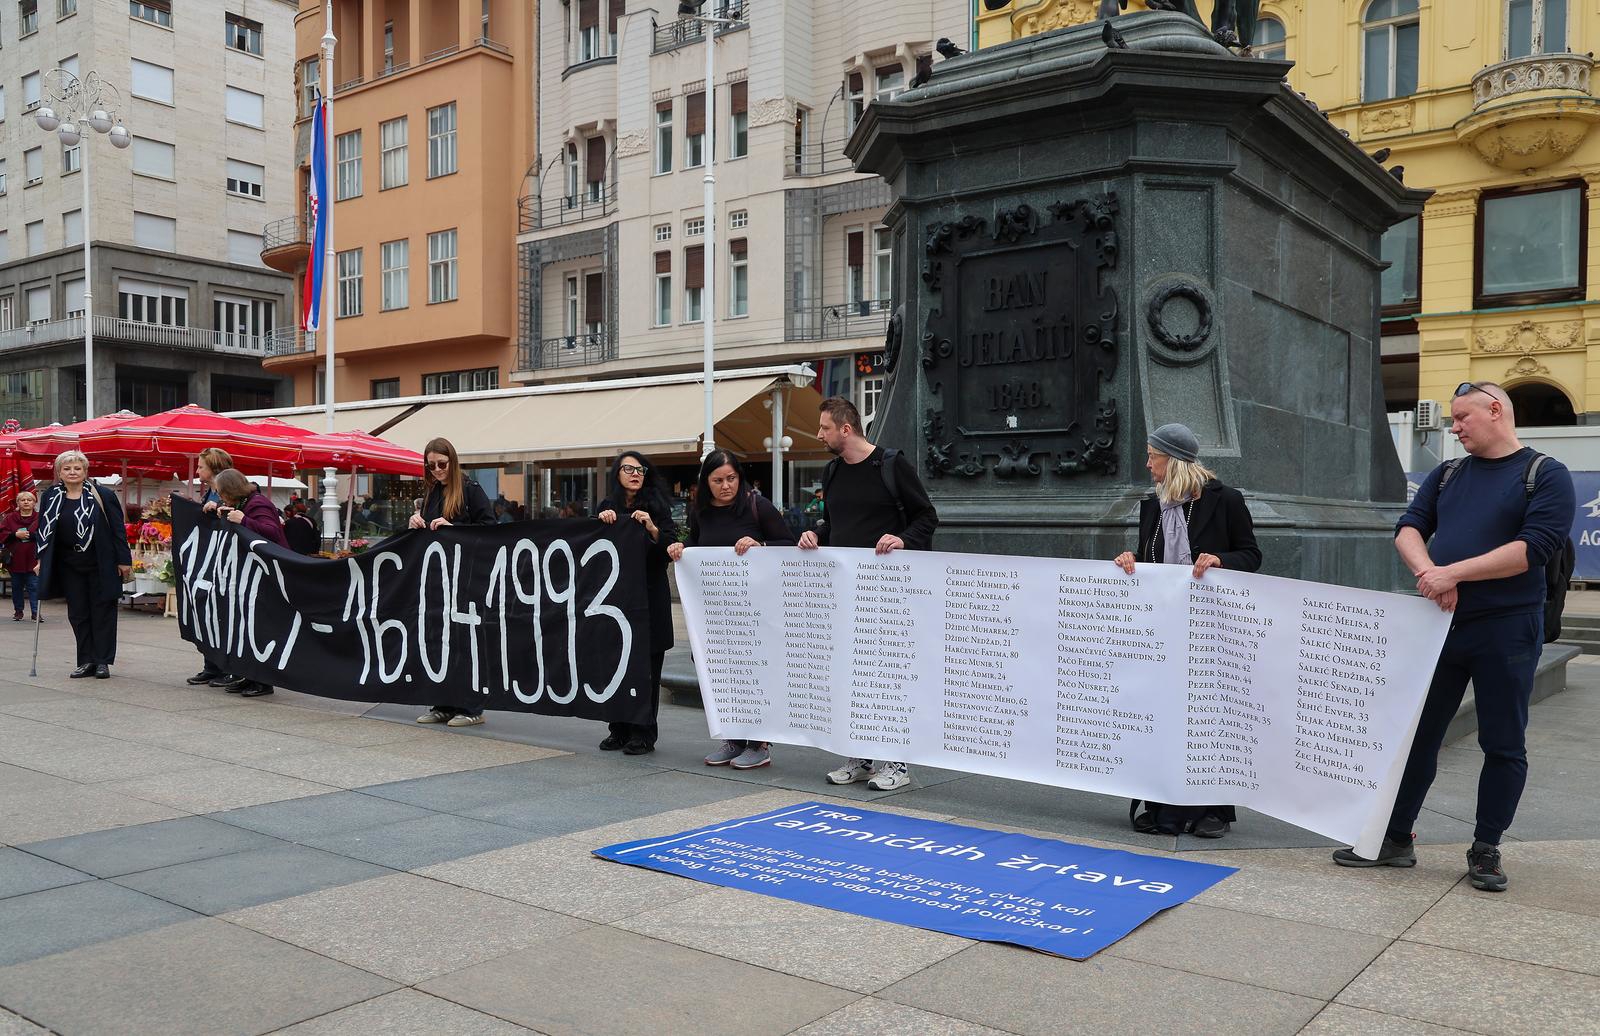 BAN
JELAČIĆ
1848.
AHMIĆI – 16.04.1993.
AHMIĆ ALIJA, 56
AHMIĆ ALMA, 15
AHMIĆ AMIR, 14
AHMIĆ ASIM, 39
AHMIĆ BESIM, 24
AHMIĆ ĆELEBIJA, 66
AHMIĆ DŽEMAL, 71
AHMIĆ DULBA, 51
AHMIĆ ELVEDIN, 19
AHMIĆ ESAD, 53
AHMIĆ FAHRUDIN, 38
AHMIĆ FATE, 53
HMIĆ HAJRA, 18
MIĆ HAJRIJA, 73
HMIĆ HAJRUDIN, 34
MIĆ HAŠIM, 62
IĆ HAZIM, 69
AHMIĆ HUSEJIN, 62
AHMIĆ ISLAM, 45
AHMIĆ LATIFA, 48
AHMIĆ MINETA, 35
AHMIĆ MIRNESA, 29
AHMIĆ MUJO, 35
AHMIĆ MUNIB, 58
AHMIĆ MURIS, 26
AHMIĆ NADIRA, 46
AHMIĆ NASER, 29
AHMIĆ NAZIF, 62
AHMIĆ RAMO, 67
AHMIĆ RASIM, 28
AHMIĆ RAZIJA, 29
AHMIĆ SAKIB, 58
AHMIĆ SAMIR, 19
AHMIĆ SEAD, 3 MJESECA
AHMIĆ SEMIR, 7
AHMIĆ SMAIL, 62
AHMIĆ SMAILA, 23
AHMIĆ ŠEFIK, 43
AHMIĆ ŠUHRET, 37
AHMIĆ ŠUHRETA, 6
AHMIĆ ZAHIR, 47
AHMIĆ ZULEJHA, 39
ALIĆ EŠREF, 38
ARNAUT ELVIS, 7
BRKA ABDULAH, 47
BRKIĆ ENVER, 23
ČERIMIĆ AIŠA, 40
ČERIMIĆ EDIN, 16
ČERIMIĆ ELVEDIN, 13
ČERIMIĆ MEHMED, 46
ČERIMIĆ SANELA, 6
DEDIĆ FARIZ, 22
DEDIĆ MUSTAFA, 45
DŽIDIĆ MUHAREM, 27
DŽIDIĆ NEDŽAD, 21
HARČEVIĆ FATIMA, 80
HELEG MUNIB, 51
HRNJIĆ ADMIR, 24
HRNJIĆ MEHMED, 47
HRUSTANOVIĆ MEHO, 62
HRUSTANOVIĆ ZARFA, 58
IMŠIREVIĆ EKREM, 48
IMŠIREVIĆ GALIB, 29
IMŠIREVIĆ ŠAĆIR, 43
KARIĆ IBRAHIM, 51
KERMO FAHRUDIN, 51
KRDALIĆ HUSO, 30
MRKONJA SABAHUDIN, 38
MRKONJA SAMIR, 16
NESLANOVIĆ MEHMED, 56
ORMANOVIĆ ZEHRUDINA, 27
OSMANČEVIĆ SABAHUDIN, 29
PAČO FEHIM, 57
PAČO HUSO, 21
PAČO NUSRET, 26
PAČO ZAIM, 24
PEHLIVANOVIĆ REDŽEP, 42
PEHLIVANOVIĆ SADIKA, 33
PEZER AHMED, 26
PEZER AZIZ, 80
PEZER ĆAZIMA, 53
PEZER FADIL, 27
PEZER FATA, 43
PEZER KASIM, 64
PEZER MEVLUDIN, 18
PEZER MUSTAFA, 56
PEZER NEZIRA, 78
PEZER OSMAN, 31
PEZER SAKIB, 42
PEZER SIRAD, 44
PEZER ŠEFIK, 52
PJANIĆ MUAMER, 21
PUŠĆUL MUZAFER, 35
RAMIĆ AMIR, 25
RAMIĆ ZENUR, 36
RIBO MUNIB, 35
SALKIĆ ADIS, 14
SALKIĆ ADISA, 11
SALKIĆ EMSAD, 37
SALKIĆ FATIMA, 32
SALKIĆ MELISA, 8
SALKIĆ NERMIN, 10
SALKIĆ NIHADA, 33
SALKIĆ OSMAN, 62
SALKIĆ REDŽIBA, 55
SALKIĆ SENAD, 14
ŠEHIĆ ELVIS, 10
ŠEHIĆ ENVER, 33
ŠILJAK ADEM, 38
TRAKO MEHMED, 53
ZEC ALISA, 11
ZEC HAJRIJA, 40
ZEC SABAHUDIN, 36
TRG
ahmićkih žrtava
Ratni zločin nad 116 bošnjačkih civila koji
su počinile postrojbe HVO-a 16.4.1993.
MKSJ je ustanovio odgovornost političkog i
vojnog vrha RH.
AG